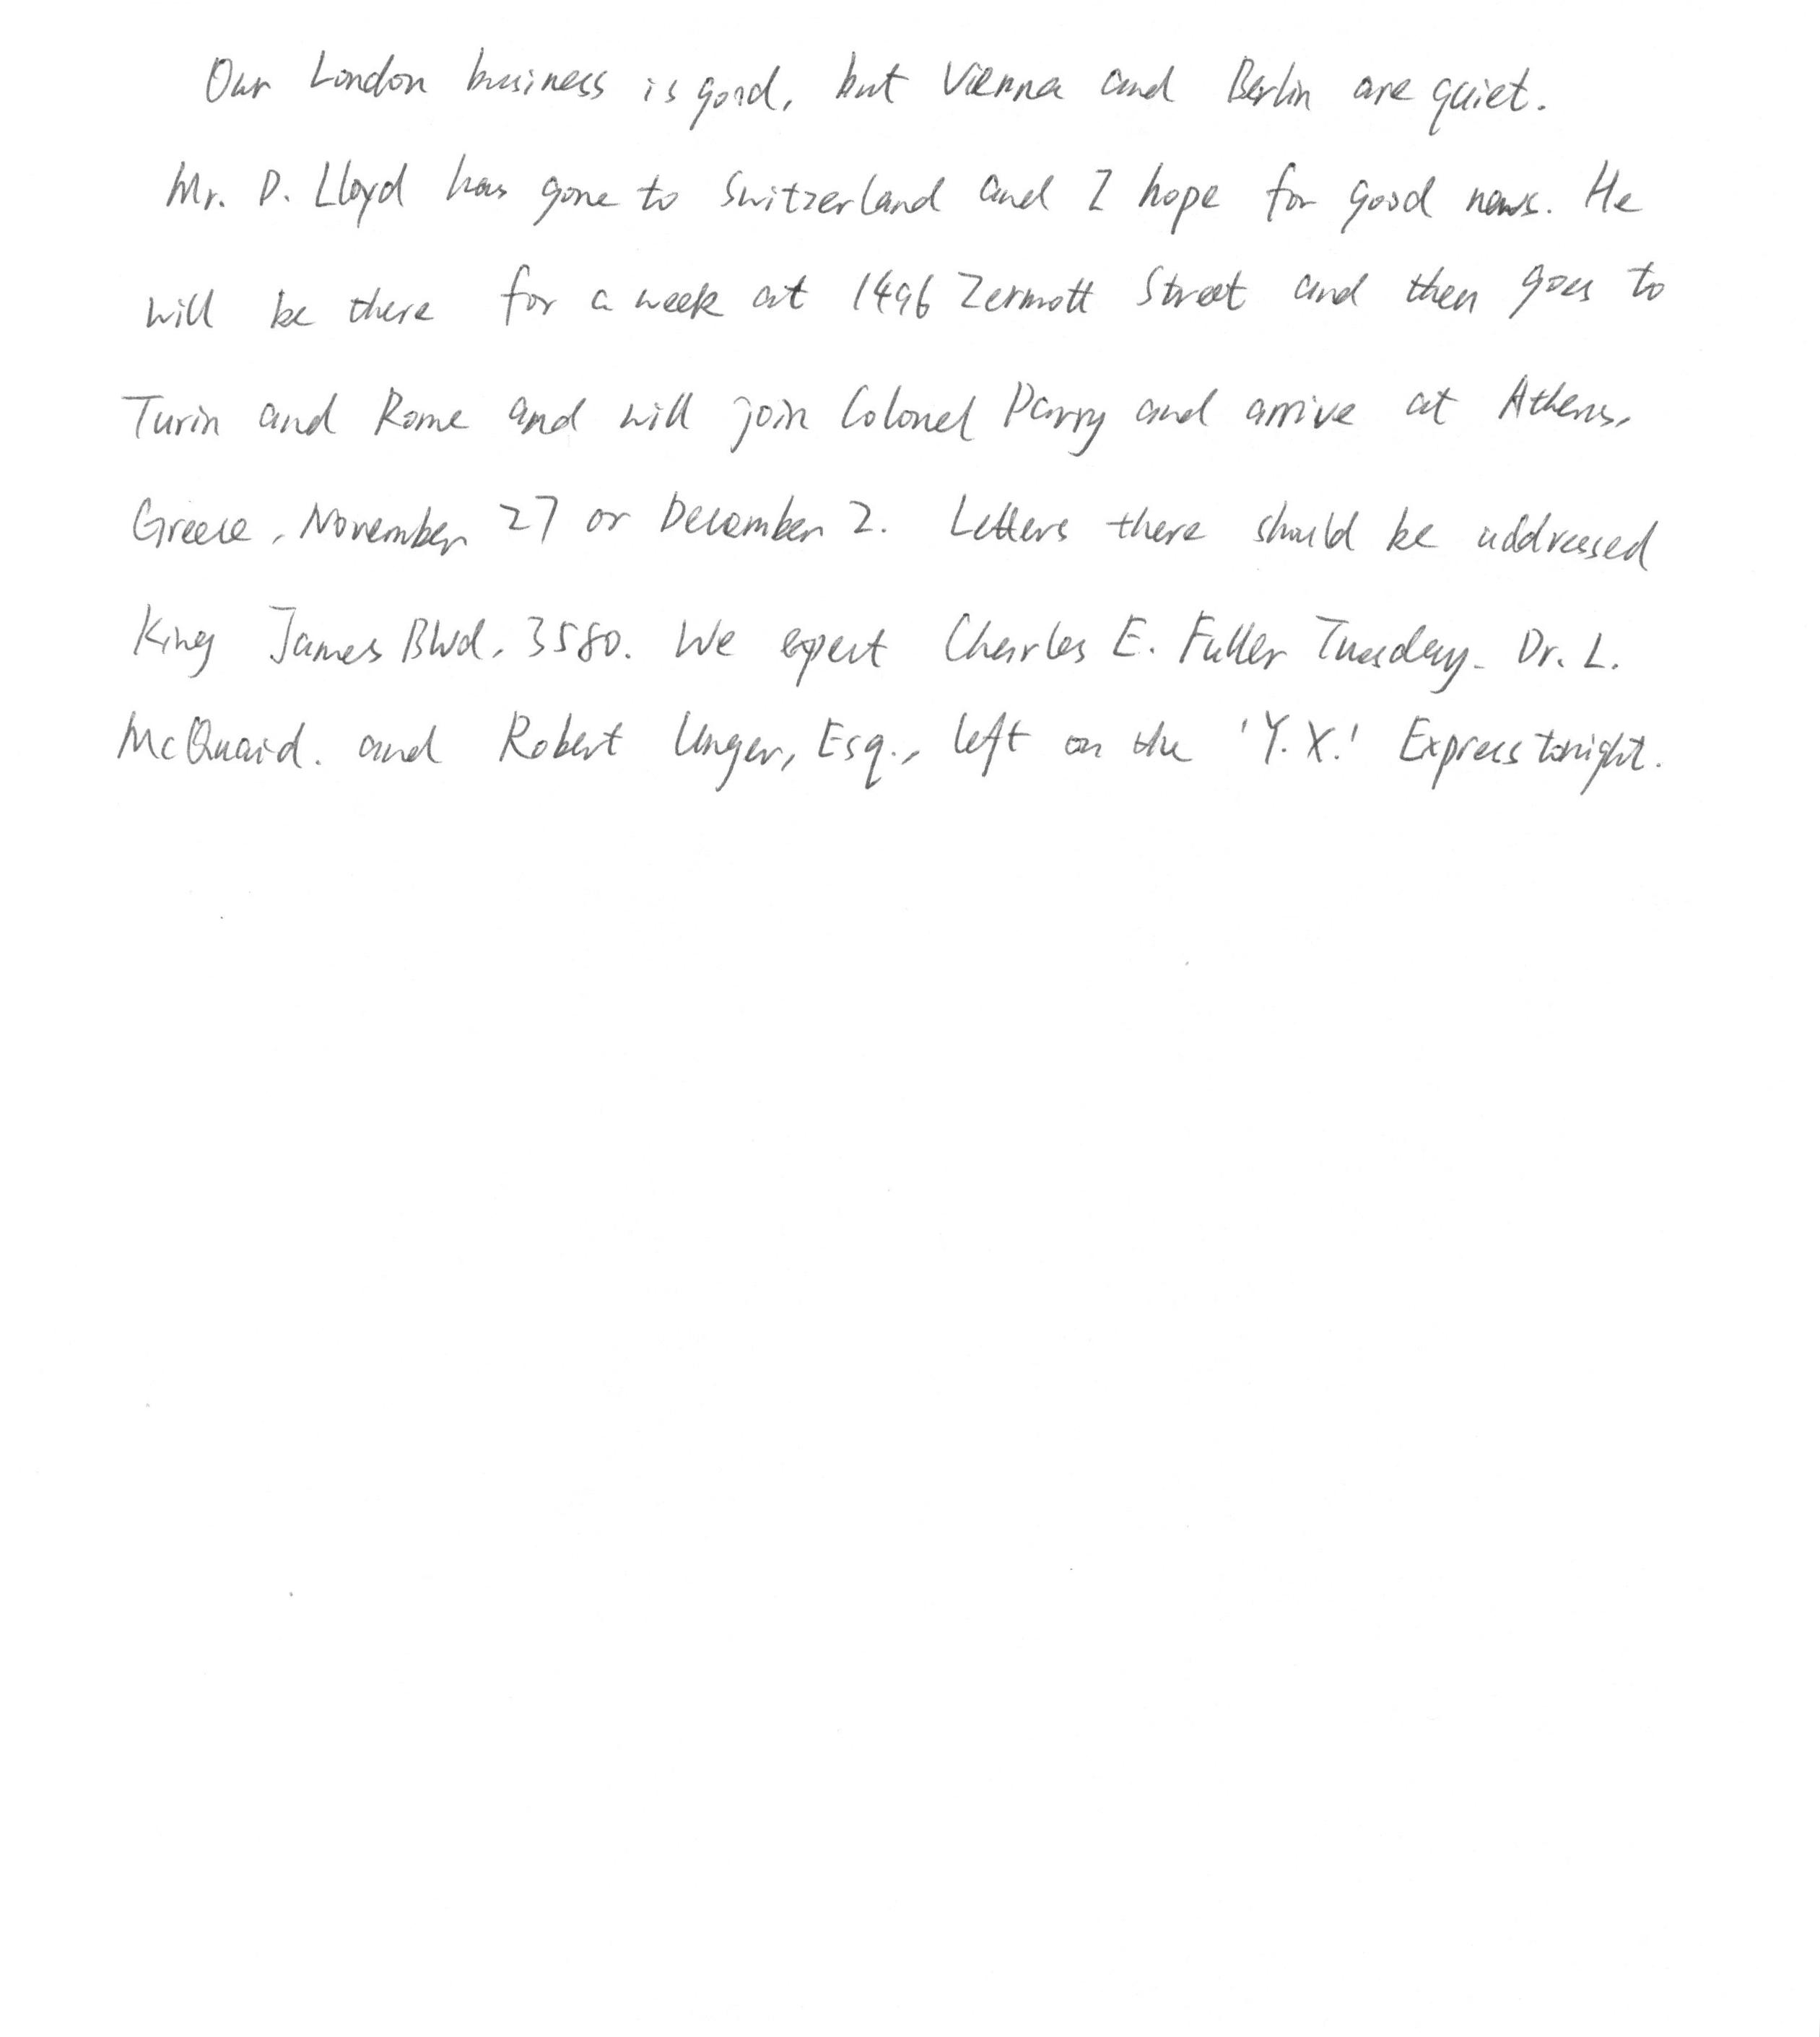 Our London business is good, but Vienna and Berlin are quiet.
Mr. D. Lloyd has gone to Switzerland and I hope for good news. He
will be there for a week at 1496 Zermott Street and then goes to
Turin and Rome and will join Colonel Parry and arrive at Athens,
Greece, November 27 or December 2. Letters there should be addressed
King James Blvd, 3580. We expect Charles E. Fuller Tuesday. Dr. L.
McQuaid. and Robert Unger, Esq., left on the 'Y.X.' Express tonight.